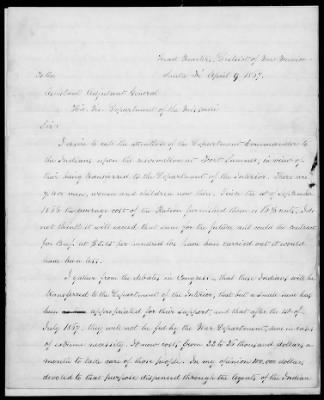 Head Quarters, District of New Mexico
Santa Fe April 9 1867.
To the
Assistant Adjutant General
Hd. Qrs. Department of the Missouri
Sir:
I desire to call the attention of the Department Commander to
the Indians upon the reservation at Fort Sumner, in view of
their being transferred to the Department of the Interior. There are
men, women and children now there. Since the 1st of September
1866 the average cost of the Ration furnished them is 16 cents. I do
not think it will exceed that sum for the future and could the contract
for Beef at per hundred lbs have been carried out it would
have been less.
I gather from the debates in Congress that these Indians will be
transferred to the Department of the Interior, that but a small sum has
been appropriated for their support, and that after the 1st of
July 1867, they will not be fed by the War Department, save in cases
of extreme necessity. It now costs from 22 to 25 thousand dollars a
month to take care of these people. In my opinion 100.000 dollars
devoted to that purpose dispensed through the Agents of the Indian